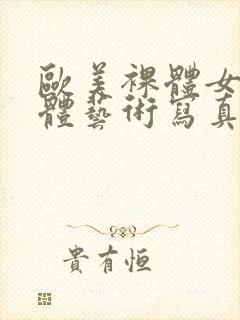 歐美裸體女
體藝術寫真
貴有恒